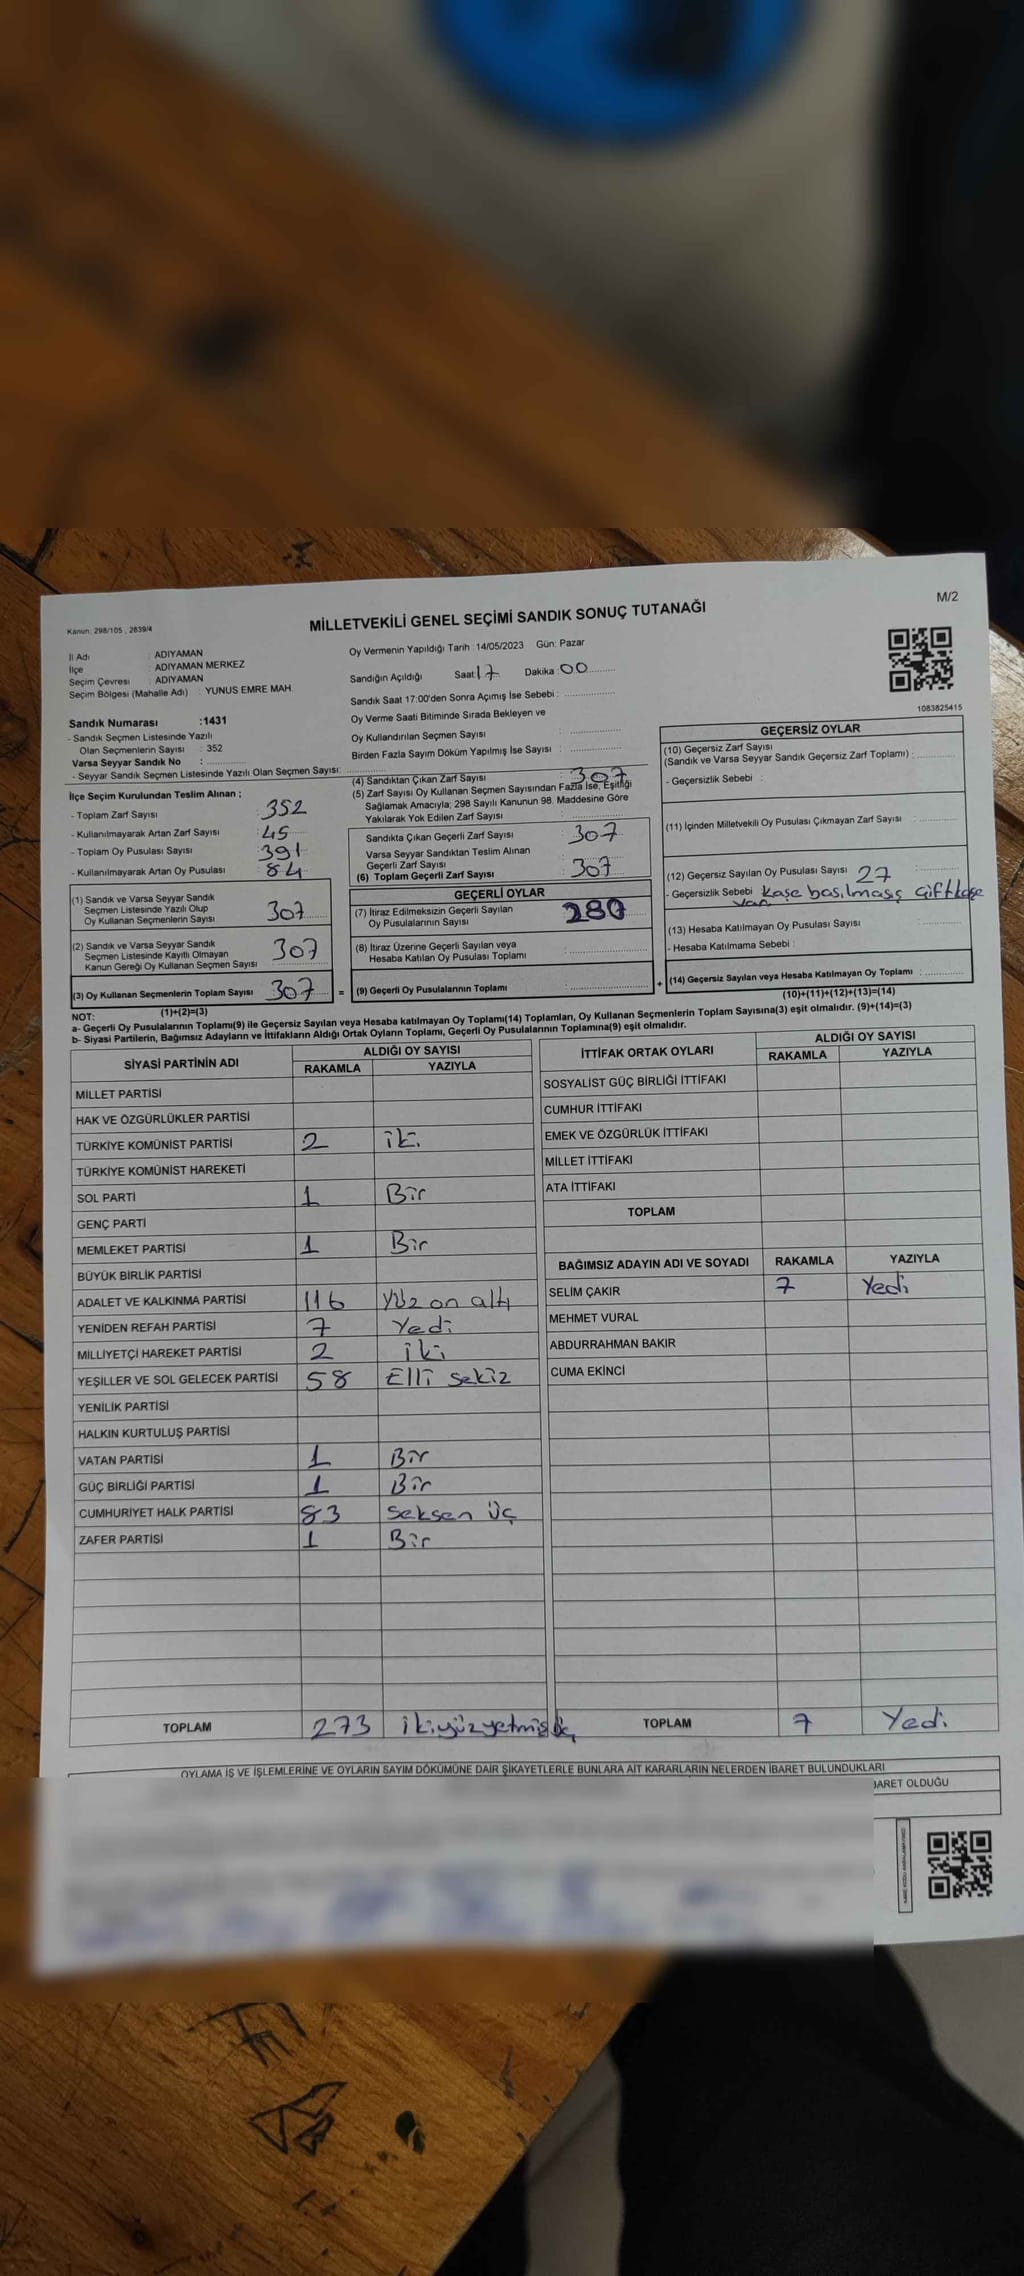 M/2
MİLLETVEKİLİ GENEL SEÇİMİ SANDIK SONUÇ TUTANAĞI
Kanun: 298/105 , 2839/4
İl Adı : ADIYAMAN
İlçe : ADIYAMAN MERKEZ
Seçim Çevresi : ADIYAMAN
Seçim Bölgesi (Mahalle Adı) : YUNUS EMRE MAH.
Sandık Numarası :1431
- Sandık Seçmen Listesinde Yazılı
Olan Seçmenlerin Sayısı : 352
Varsa Seyyar Sandık No :
- Seyyar Sandık Seçmen Listesinde Yazılı Olan Seçmen Sayısı:
Oy Vermenin Yapıldığı Tarih : 14/05/2023 Gün: Pazar
Sandığın Açıldığı Saat: 17 Dakika : 00
Sandık Saat 17:00'den Sonra Açımış İse Sebebi :
Oy Verme Saati Bitiminde Sırada Bekleyen ve
Oy Kullandırılan Seçmen Sayısı :
Birden Fazla Sayım Döküm Yapılmış İse Sayısı :
1083825415
İlçe Seçim Kurulundan Teslim Alınan ;
- Toplam Zarf Sayısı : 352
- Kullanılmayarak Artan Zarf Sayısı : 45
- Toplam Oy Pusulası Sayısı : 391
- Kullanılmayarak Artan Oy Pusulası : 84
(1) Sandık ve Varsa Seyyar Sandık
Seçmen Listesinde Yazılı Olup
Oy Kullanan Seçmenlerin Sayısı : 307
(2) Sandık ve Varsa Seyyar Sandık
Seçmen Listesinde Kayıtlı Olmayan
Kanun Gereği Oy Kullanan Seçmen Sayısı : 307
(3) Oy Kullanan Seçmenlerin Toplam Sayısı : 307
(1)+(2)=(3)
(4) Sandıktan Çıkan Zarf Sayısı : 307
(5) Zarf Sayısı Oy Kullanan Seçmen Sayısından Fazla İse, Eşitliği
Sağlamak Amacıyla; 298 Sayılı Kanunun 98. Maddesine Göre
Yakılarak Yok Edilen Zarf Sayısı :
Sandıkta Çıkan Geçerli Zarf Sayısı : 307
Varsa Seyyar Sandıktan Teslim Alınan
Geçerli Zarf Sayısı :
(6) Toplam Geçerli Zarf Sayısı : 307
GEÇERLİ OYLAR
(7) İtiraz Edilmeksizin Geçerli Sayılan
Oy Pusulalarının Sayısı : 280
(8) İtiraz Üzerine Geçerli Sayılan veya
Hesaba Katılan Oy Pusulası Toplamı :
= (9) Geçerli Oy Pusulalarının Toplamı : +
GEÇERSİZ OYLAR
(10) Geçersiz Zarf Sayısı
(Sandık ve Varsa Seyyar Sandık Geçersiz Zarf Toplamı) :
- Geçersizlik Sebebi :
(11) İçinden Milletvekili Oy Pusulası Çıkmayan Zarf Sayısı :
(12) Geçersiz Sayılan Oy Pusulası Sayısı : 27
- Geçersizlik Sebebi : kaşe basılmasış çift kaşe
var
(13) Hesaba Katılmayan Oy Pusulası Sayısı :
- Hesaba Katılmama Sebebi :
(14) Geçersiz Sayılan veya Hesaba Katılmayan Oy Toplamı :
(10)+(11)+(12)+(13)=(14)
NOT:
a- Geçerli Oy Pusulalarının Toplamı(9) ile Geçersiz Sayılan veya Hesaba katılmayan Oy Toplamı(14) Toplamları, Oy Kullanan Seçmenlerin Toplam Sayısına(3) eşit olmalıdır. (9)+(14)=(3)
b- Siyasi Partilerin, Bağımsız Adayların ve İttifakların Aldığı Ortak Oyların Toplamı, Geçerli Oy Pusulalarının Toplamına(9) eşit olmalıdır.
SİYASİ PARTİNİN ADI ALDIĞI OY SAYISI
RAKAMLA YAZIYLA
MİLLET PARTİSİ
HAK VE ÖZGÜRLÜKLER PARTİSİ
TÜRKİYE KOMÜNİST PARTİSİ 2 iki
TÜRKİYE KOMÜNİST HAREKETİ
SOL PARTİ 1 Bir
GENÇ PARTİ
MEMLEKET PARTİSİ 1 Bir
BÜYÜK BİRLİK PARTİSİ
ADALET VE KALKINMA PARTİSİ 116 yüz on altı
YENİDEN REFAH PARTİSİ 7 Yedi
MİLLİYETÇİ HAREKET PARTİSİ 2 iki
YEŞİLLER VE SOL GELECEK PARTİSİ 58 Elli sekiz
YENİLİK PARTİSİ
HALKIN KURTULUŞ PARTİSİ
VATAN PARTİSİ 1 Bir
GÜÇ BİRLİĞİ PARTİSİ 1 Bir
CUMHURİYET HALK PARTİSİ 83 seksen üç
ZAFER PARTİSİ 1 Bir
TOPLAM 273 ikiyüzyetmişüç
İTTİFAK ORTAK OYLARI ALDIĞI OY SAYISI
RAKAMLA YAZIYLA
SOSYALİST GÜÇ BİRLİĞİ İTTİFAKI
CUMHUR İTTİFAKI
EMEK VE ÖZGÜRLÜK İTTİFAKI
MİLLET İTTİFAKI
ATA İTTİFAKI
TOPLAM
BAĞIMSIZ ADAYIN ADI VE SOYADI RAKAMLA YAZIYLA
SELİM ÇAKIR 7 Yedi
MEHMET VURAL
ABDURRAHMAN BAKIR
CUMA EKİNCİ
TOPLAM 7 Yedi
OYLAMA İŞ VE İŞLEMLERİNE VE OYLARIN SAYIM DÖKÜMÜNE DAİR ŞİKAYETLERLE BUNLARA AİT KARARLARIN NELERDEN İBARET BULUNDUKLARI
BARET OLDUĞU